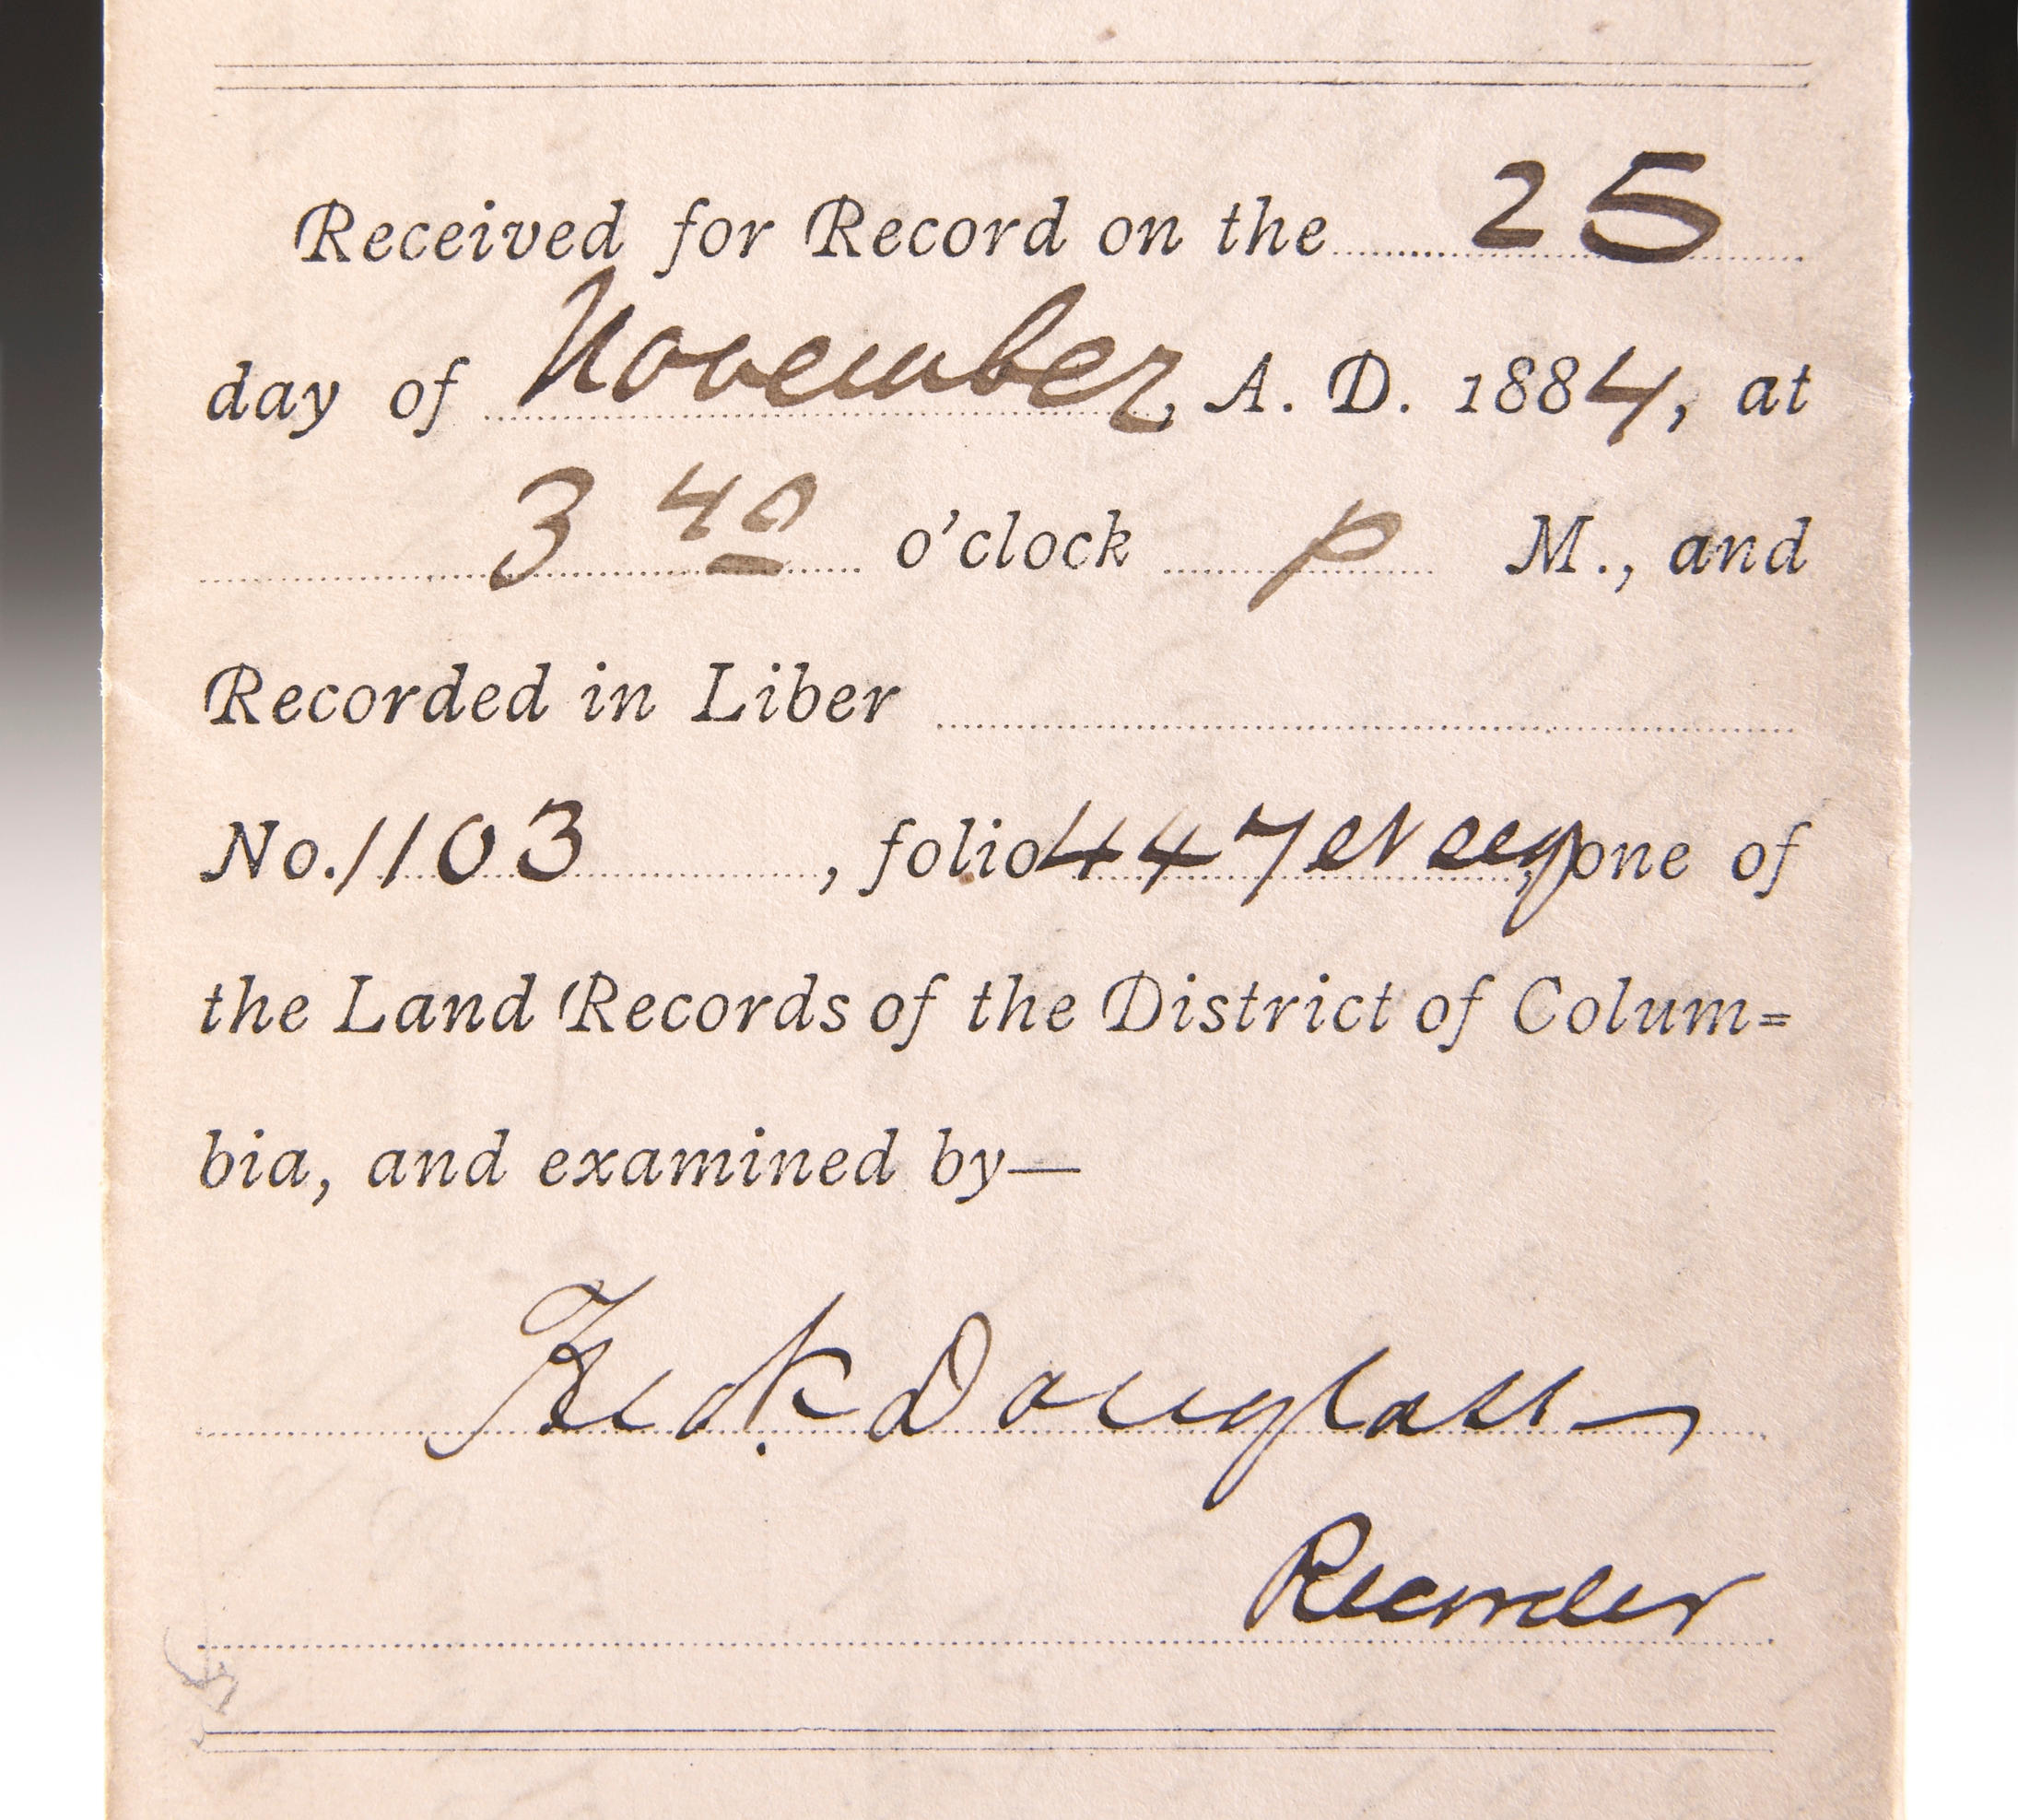 Received for Record on the 25
day of November, A. D. 1884, at
3 40 o'clock P M., and
Recorded in Liber
No. 1103, folio 447 et seq, one of
the Land Records of the District of Colum=
bia, and examined by—
Fredk Douglass
Recorder